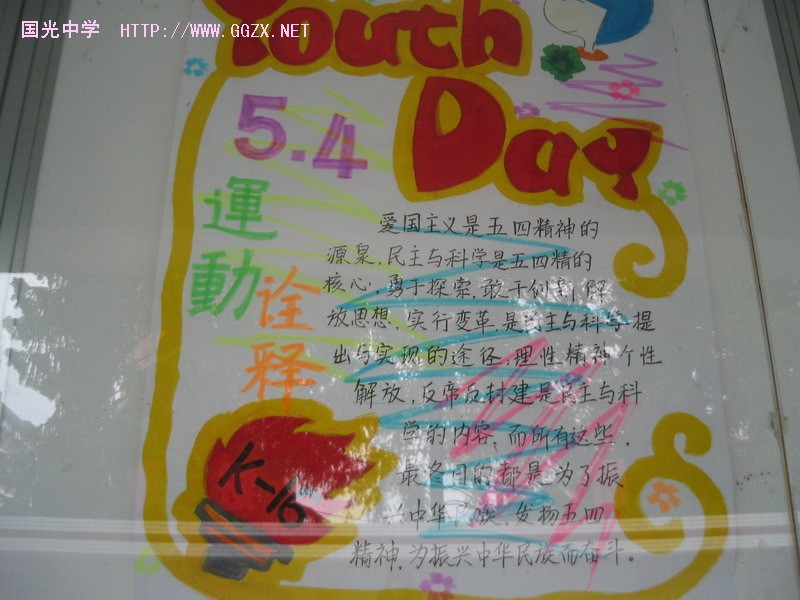 国光中学 HTTP://WWW.GGZX.NET
Youth
Day
5.4
運動
诠释
爱国主义是五四精神的
源泉,民主与科学是五四精的
核心,勇于探索,敢于创新,解
放思想、实行变革,是民主与科学提
出与实现的途径,理性精神个性
解放,反帝反封建是民主与科
学的内容,而所有这些,
最终目的都是为了振
兴中华民族,发扬五四
精神,为振兴中华民族而奋斗。